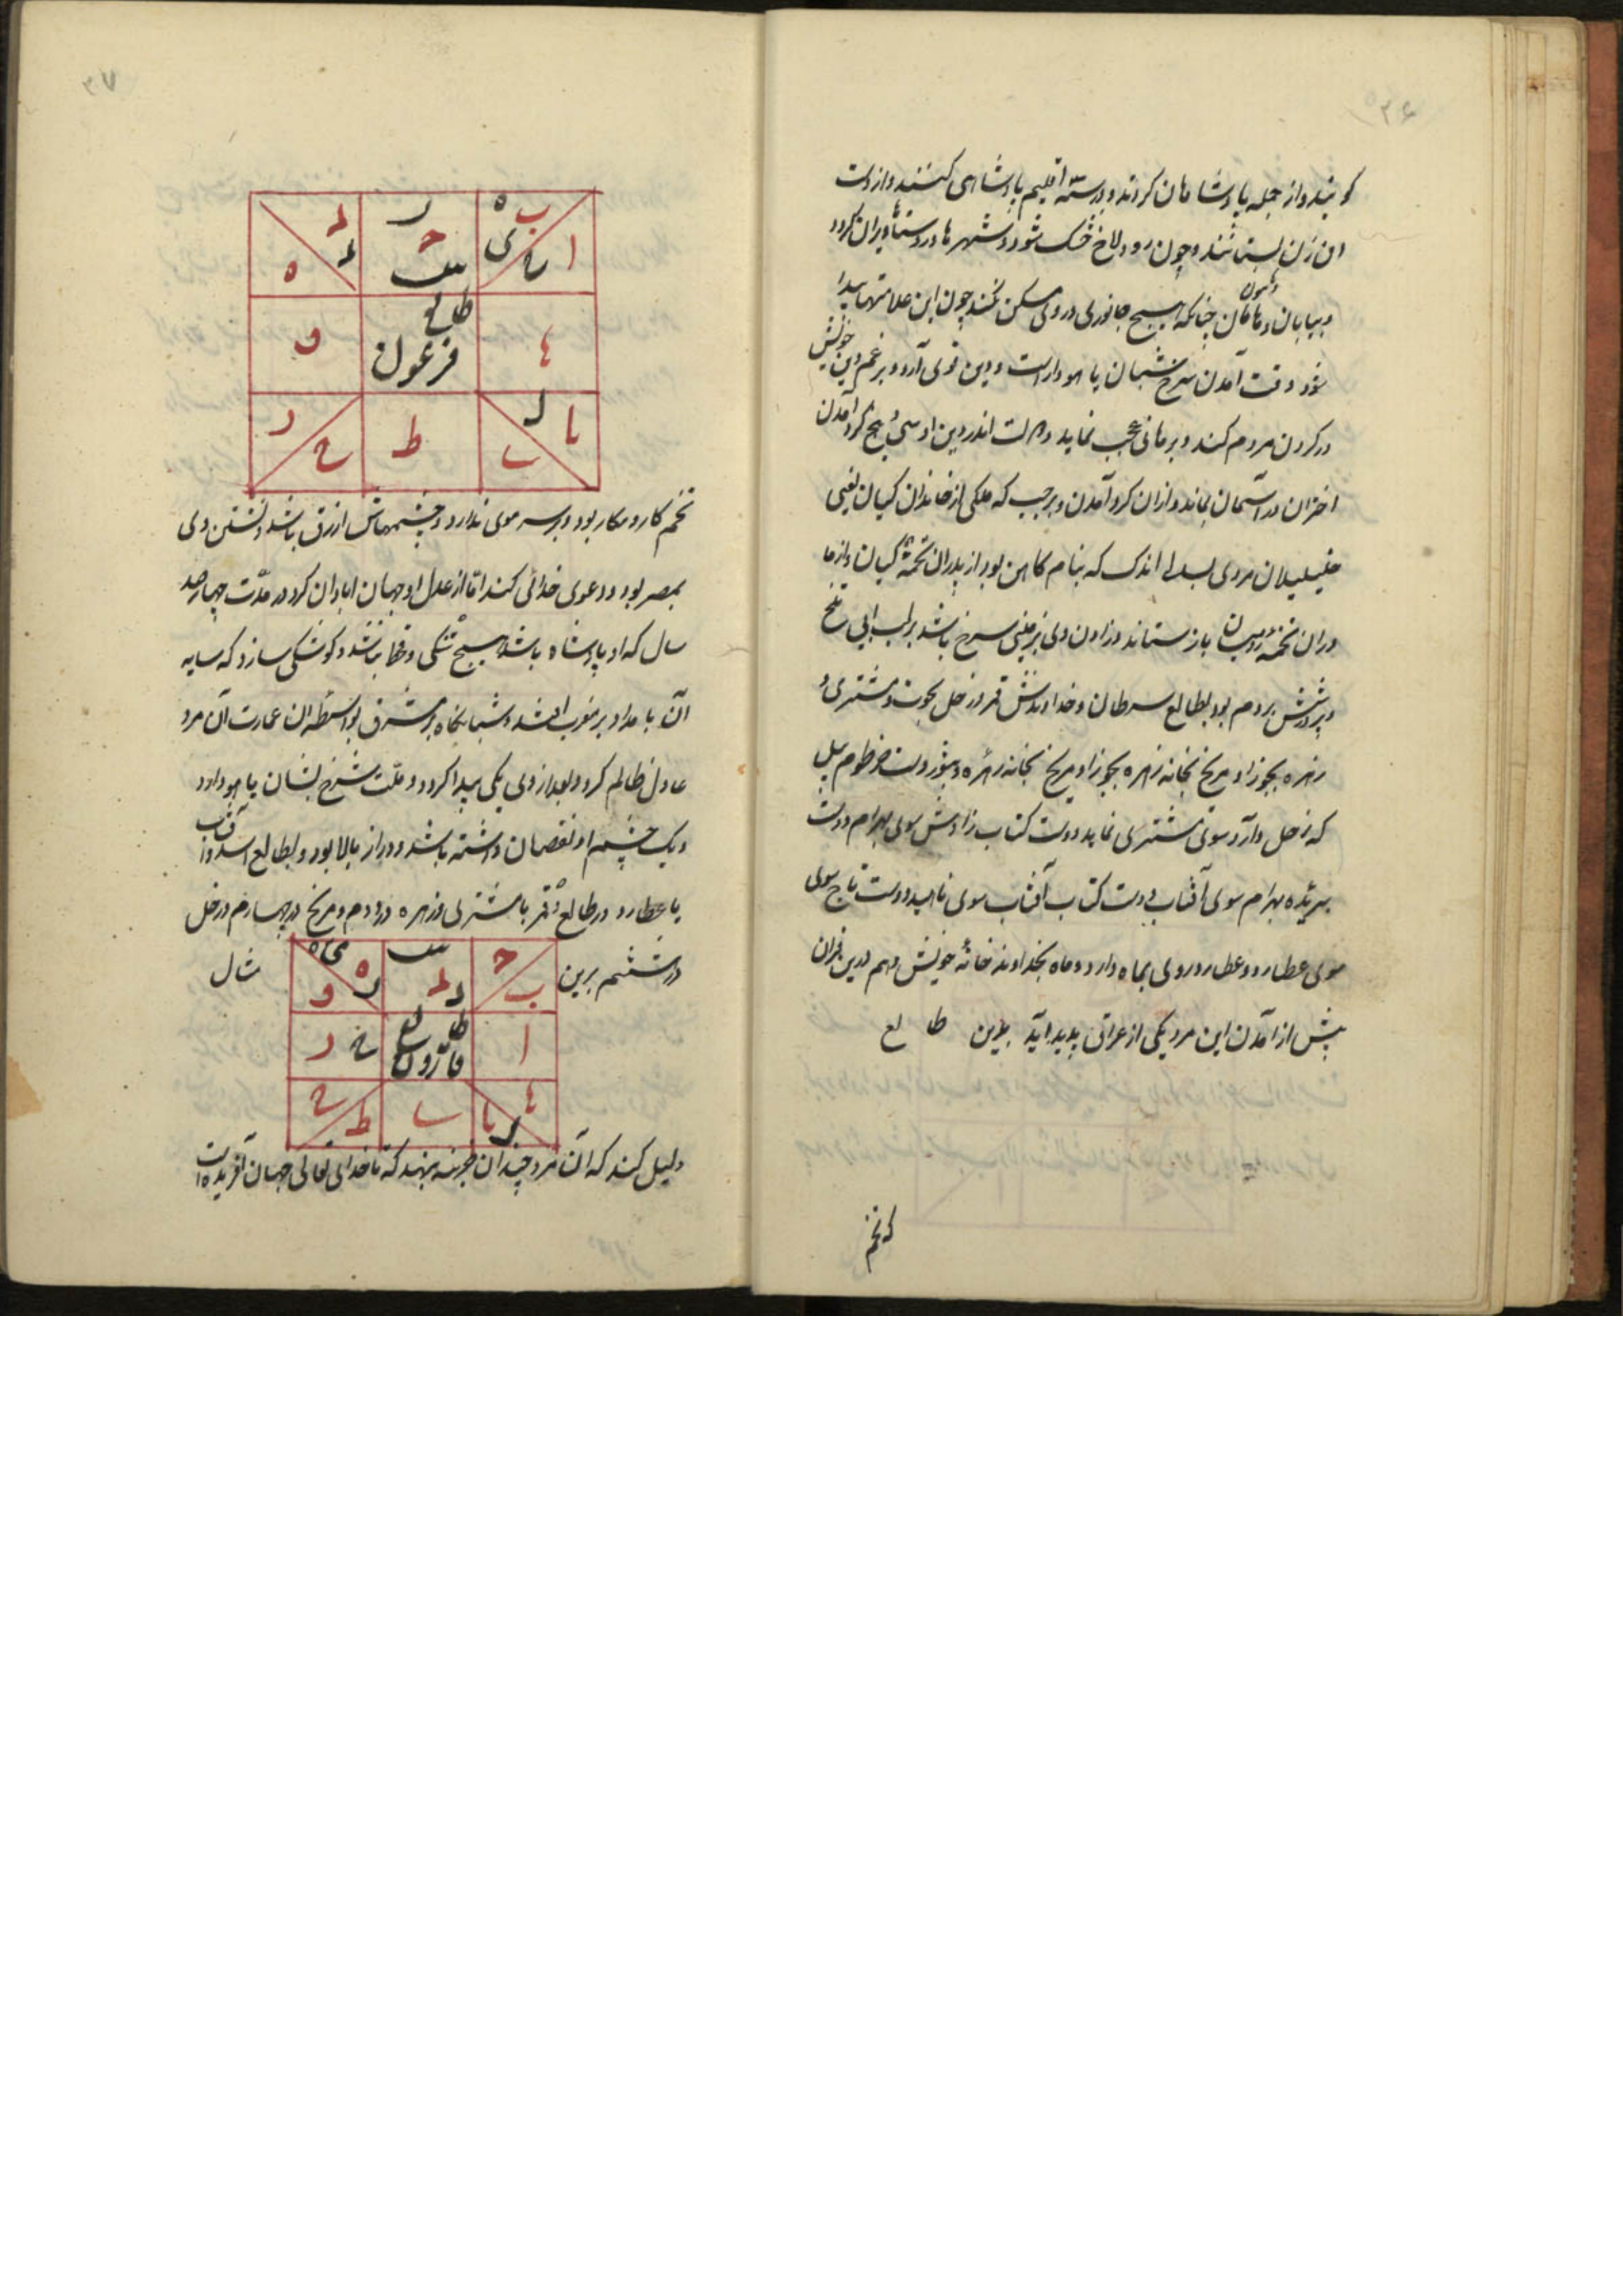 ۳۶
کویند و از جمله پادشاهان کردند و در سه اقلیم پادشاهی کنند و از دست
این زن بستانند و چون رود بلاخ خشک شود و شهرها و روستاها ویران کردد
و بیابان و هامون چنانکه هیچ جانوری در وی مسکن نکند چون این علامتها پیدا
شود وقت آمدن سرخ شبان یا هوداراست و دین قوی آرد و برغم دین خویش
در کردن مردم کند و برهانی عجب نماید و اندر دین او سی و پنج کرد آمدن
اختران در آسمان بماند و از آن کرد آمدن و برجیب که ملکی از خاندان کیان یعنی
مردی بسالی اندک که بنام کاهن بود از پدران تخمهٔ کیان و از ما
در آن تخمهٔ رومیان بازستاند و زادن وی بزمینی سرخ باشد برلب آبی تلخ
و پرورشش بروم بود بطالع سرطان و خداوندش قمر و زحل بحوت و مشتری و
زهره بجوزا و مریخ بخانه زهره بجوزا و مریخ بخانه زهره و بثور دست خرطوم پیل
که زحل دارد سوی مشتری نماید دست کتاب زادش سوی بهرام دست
بریده بهرام سوی آفتاب دست کتاب آفتاب سوی ناهید دست تاج سوی
سوی عطارد و عطارد روی بماه دارد و ماه بخداوند خانهٔ خویش و هم درین قران
پیش از آمدن این مرد یکی از عراق پدید آید بدین طا لع
که تخم
۳۷
ب ه ا ی ح
ر ح ست
د د ه
ء
طالع فرعون
و
یا ل ب
ط
ر ح
تخم کار و مکار بود و بر سر موی ندارد و چشمهاش ازرق باشد و نشستن وی
بمصر بود و دعوی خدائی کند اما از عدل او جهان ابادان کردد در مدت چهارصد
سال که او پادشاه باشد هیچ تنکی و قحط نباشد و کوشکی سازد که سایه
آن بامداد بر مغرب افتد و شبانکاه بر مشرق بواسطه آن عمارت آن مرد
عادل ظالم کردد و بعد از وی یکی پیدا کردد و ملت سرخ شبان یا هو دارد
و یک چشم او نقصان داشته باشد و دراز بالا بود و بطالع اسد و آفتاب
با عطارد در طالع و قمر با مشتری و زهره در دوم و مریخ در چهارم و زحل
در ششم برین مثال
ح ب
ست د د
ی ه ه ر و
ا
طالع قارون
ح ر
ء یا ل
ب
ح ط
دلیل کند که آن مرد چندان خزینه بنهد که تا خدای تعالی جهان آفریده است